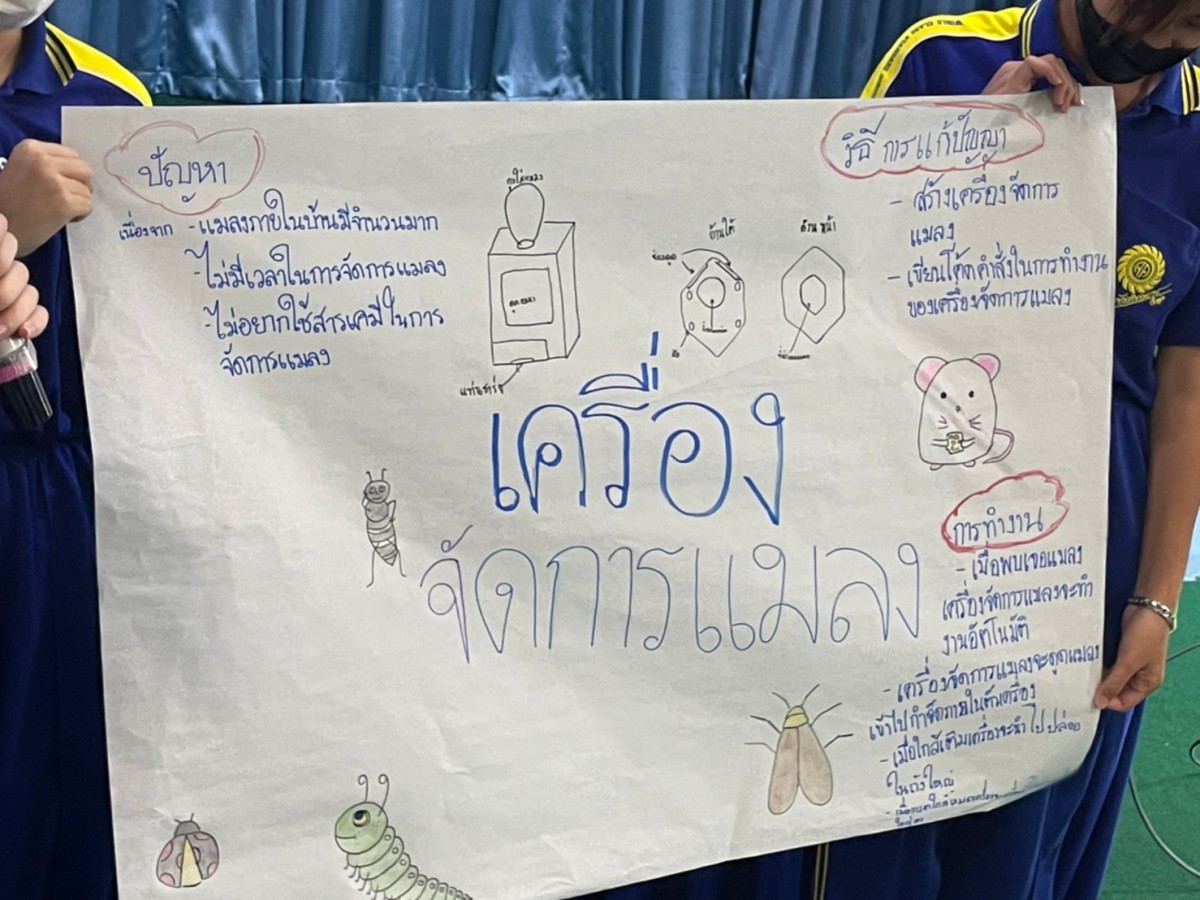 ปัญหา
เนื่องจาก - แมลงภายในบ้านมีจำนวนมาก
- ไม่มีเวลาในการจัดการแมลง
- ไม่อยากใช้สารเคมีในการ
จัดการแมลง
ถุงใส่แมลง
แท่นชาร์จ
ด้านใต้
ด้านหน้า
วิธีการแก้ปัญหา
- สร้างเครื่องจัดการ
แมลง
- เขียนโค้ดคำสั่งในการทำงาน
ของเครื่องจัดการแมลง
เครื่อง
จัดการแมลง
การทำงาน
- เมื่อพบเจอแมลง
เครื่องจัดการแมลงจะทำ
งานอัตโนมัติ
- เครื่องจัดการแมลงจะดูดแมลง
เข้าไปกำจัดภายในตัวเครื่อง
- เมื่อใกล้เต็มเครื่องจะนำไปปล่อย
ในถังใหญ่